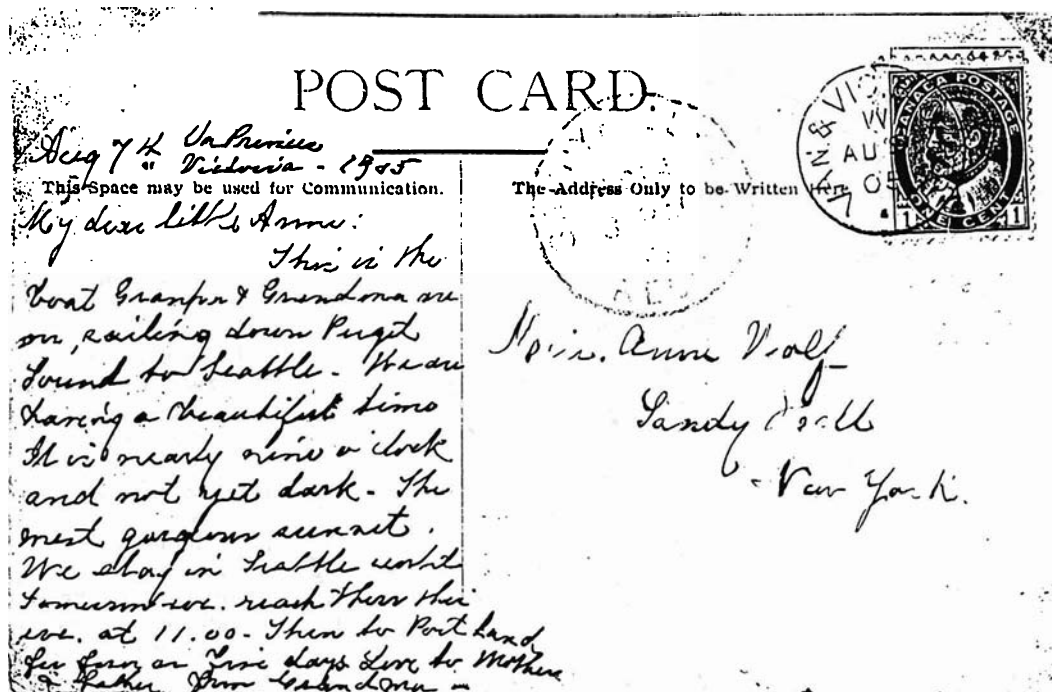 POST CARD.
Aug 7th On Princess
Victoria - 1905
This Space may be used for Communication.
The Address Only to be Written Here
My dear little Anne:
This is the
boat Granpa & Grandma are
on, sailing down Puget
Sound to Seattle - We are
having a beautiful time
It is nearly nine o'clock
and not yet dark - The
most gorgeous sunset.
We stay in Seattle until
tomorrow eve. reach there this
eve. at 11.00 - Then to Portland
for four or five days Love to Mother
& father from Grandma -
Miss. Anne
Sandy Hill
New York.
VAN & VIC
AU
05
CANADA POSTAGE
1 ONE CENT 1